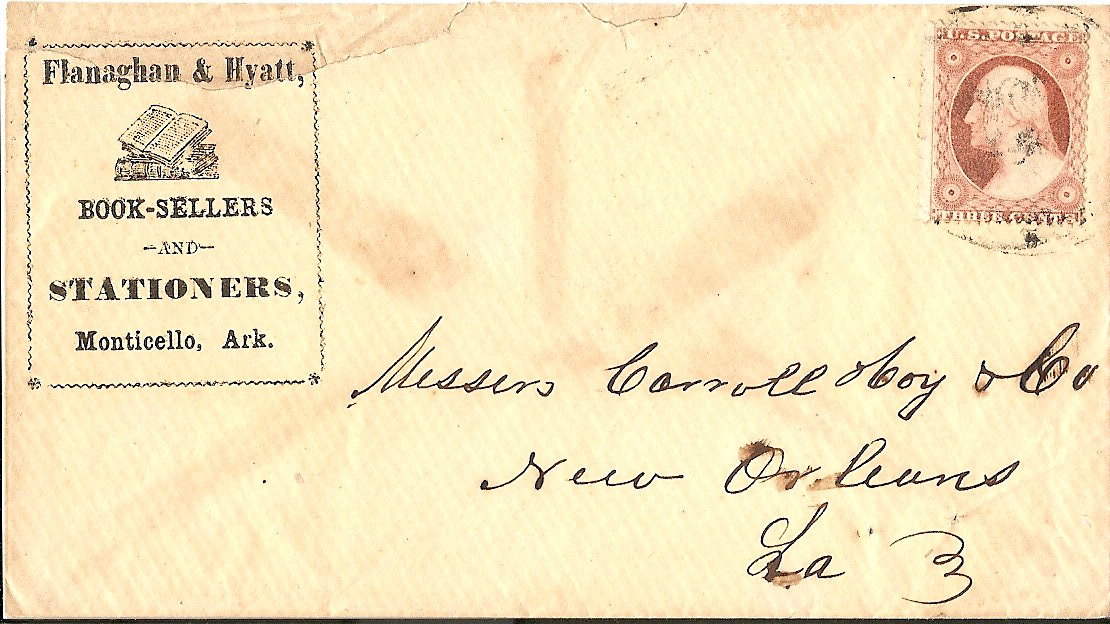 Flanaghan & Hyatt,
BOOK-SELLERS
—AND—
STATIONERS,
Monticello, Ark.
U.S. POSTAGE
THREE CENTS
Messers Carroll Hoy & Co
New Orleans
La